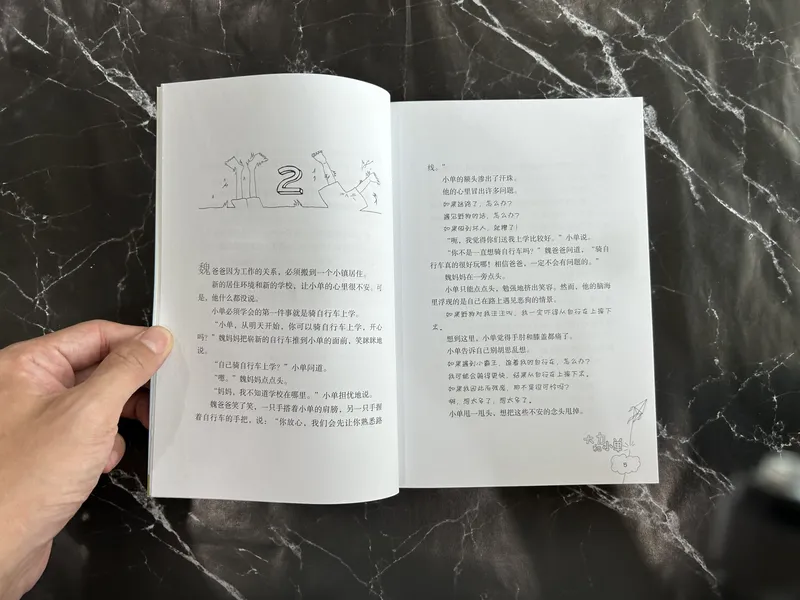 2
魏爸爸因为工作的关系，必须搬到一个小镇居住。
新的居住环境和新的学校，让小单的心里很不安。可
是，他什么都没说。
小单必须学会的第一件事就是骑自行车上学。
“小单，从明天开始，你可以骑自行车上学，开心
吗？”魏妈妈把崭新的自行车推到小单的面前，笑眯眯地
说。
“自己骑自行车上学？”小单问道。
“嗯。”魏妈妈点点头。
“妈妈，我不知道学校在哪里。”小单担忧地说。
魏爸爸笑了笑，一只手搭着小单的肩膀，另一只手握
着自行车的手把，说：“你放心，我们会先让你熟悉路
线。”
小单的额头渗出了汗珠。
他的心里冒出许多问题。
如果迷路了，怎么办？
遇见野狗的话，怎么办？
如果碰到坏人，就糟了！
“呃，我觉得你们送我上学比较好。”小单说。
“你不是一直想骑自行车吗？”魏爸爸问道，“骑自
行车真的很好玩哪！相信爸爸，一定不会有问题的。”
魏妈妈在一旁点头。
小单只能点点头，勉强地挤出笑容。然而，他的脑海
里浮现的是自己在路上遇见恶狗的情景。
如果野狗对我汪汪叫，我一定吓得从自行车上摔下
来。
想到这里，小单觉得手肘和膝盖都痛了。
小单告诉自己别胡思乱想。
如果遇到小霸王，抢着我的自行车，怎么办？
我可能会骑得更快，结果从自行车上摔下来。
如果我因此而残废，那不是很可怜吗？
啊，想太多了，想太多了。
小单甩一甩头，想把这些不安的念头甩掉。
5